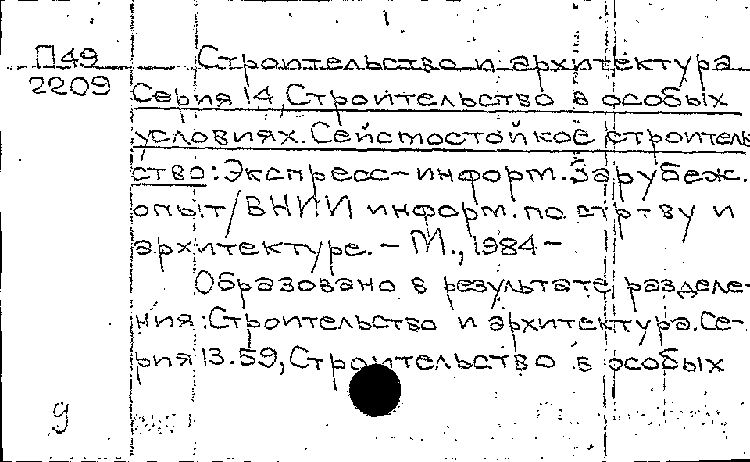 П49 Строительство и архитектура
2209 Серия 14, Строительство в особых
условиях. Сейсмостойкое строитель
ство: Экспресс-информ. Зарубеж.
опыт/ВНИИ информ. по стр-ву и
архитектуре. - М., 1984-
Образовано в результате разделе-
ния: Строительство и архитектура. Се-
рия 13.59, Строительство в особых
g